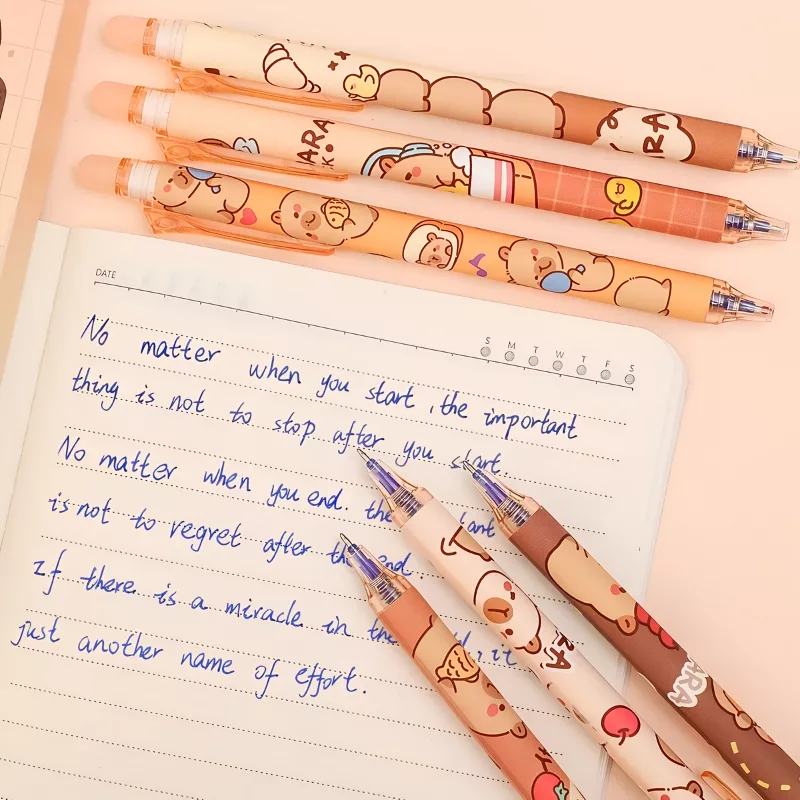 ARA
ARA
DATE
S M T W T F S
No matter when you start , the important
thing is not to stop after you start.
No matter when you end. the tant
is not to regret after th end.
If there is a miracle in the , it
just another name of effort.
RA
ARA